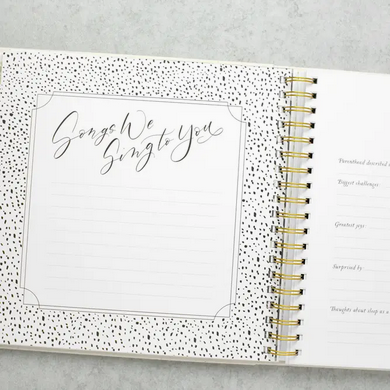 Songs We
Sing to You
Parenthood described
Biggest challenges
Greatest joys
Surprised by
Thoughts about sleep as a